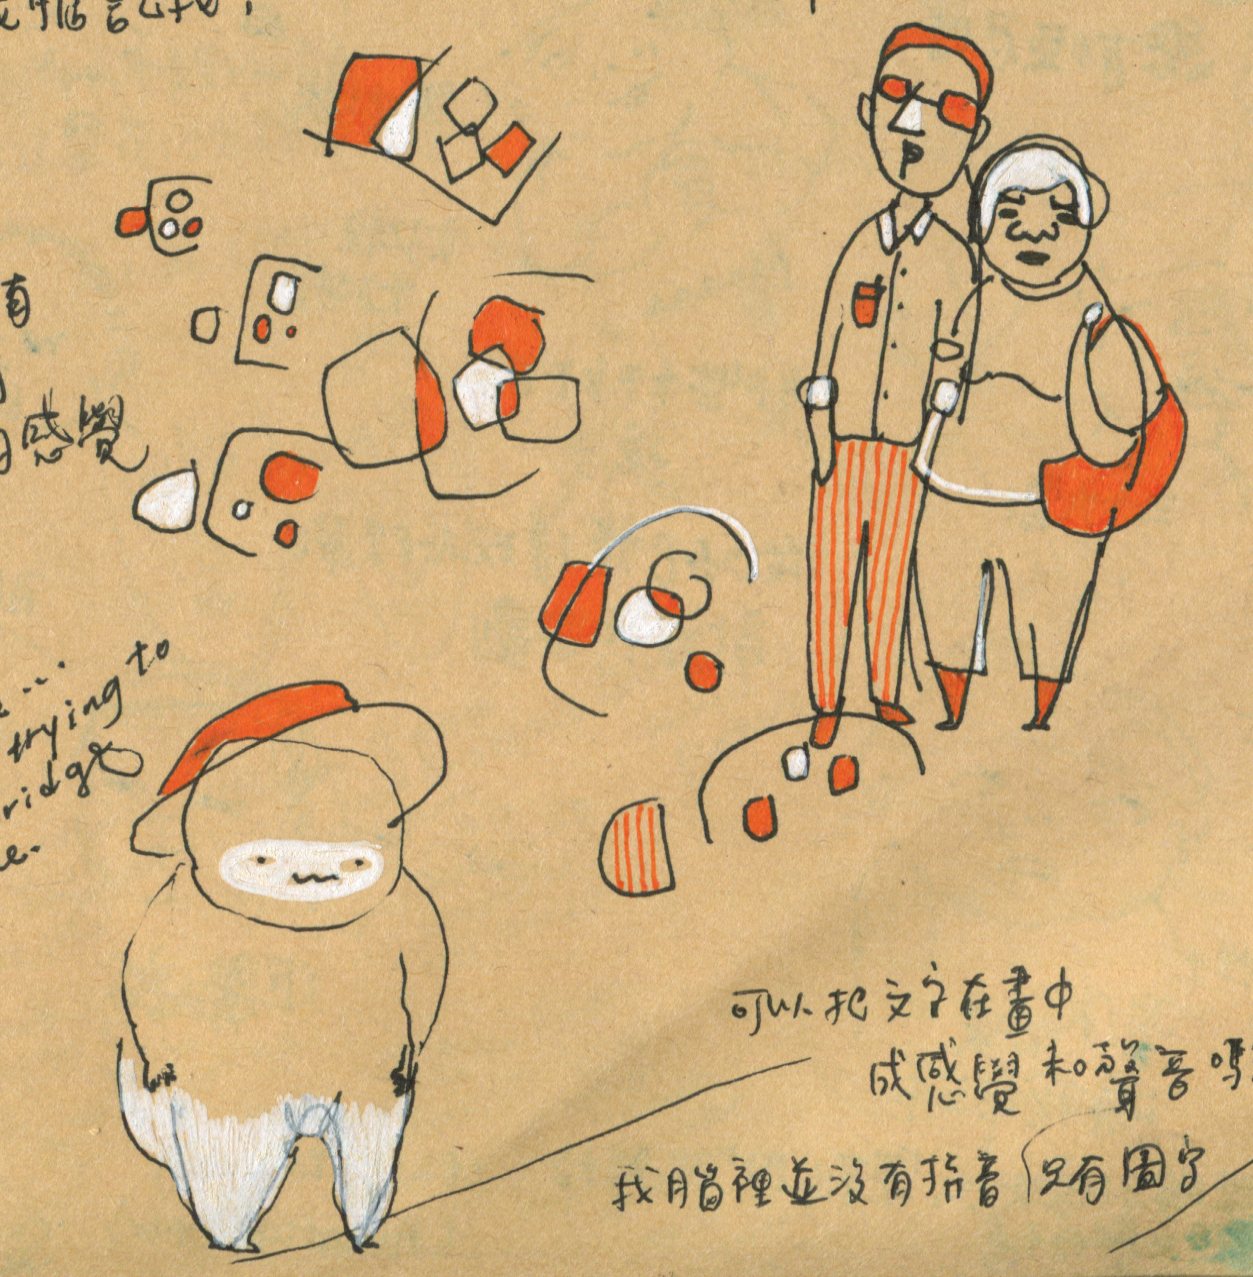 有
感覺
trying to
可以把文字在畫中
成感覺和聲音嗎
我腦裡並沒有拼音 只有圖字